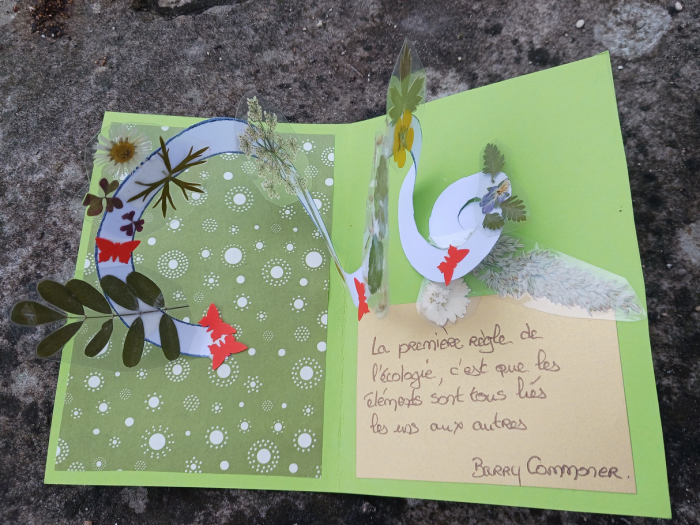 La première règle de
l'écologie, c'est que les
éléments sont tous liés
les uns aux autres
Barry Commoner.